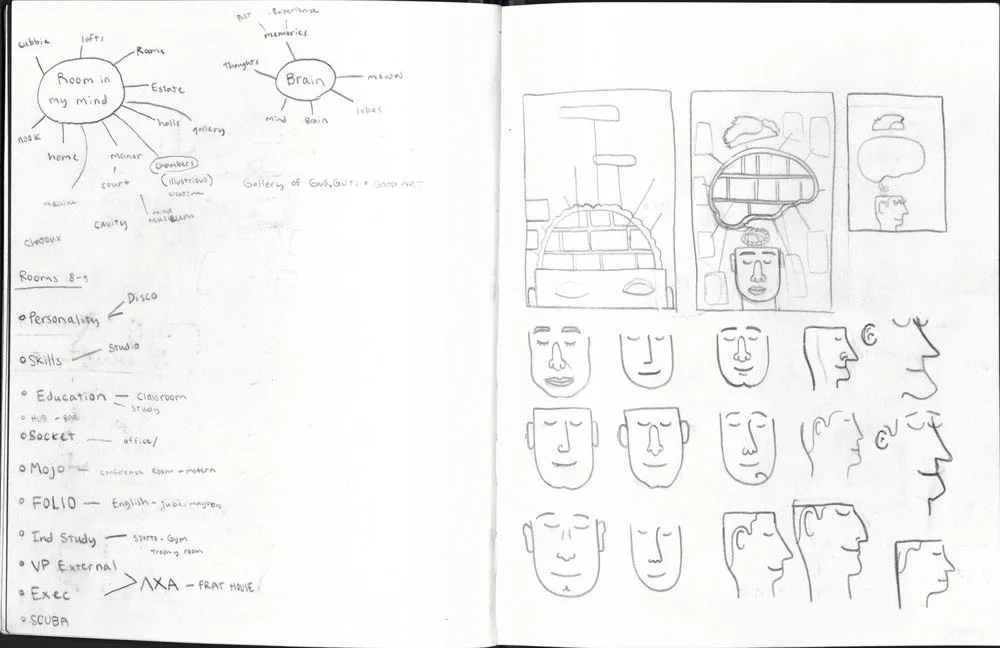 Past - Experience
memories
cubbie
lofts
Rooms
Room in
my mind
Thoughts
Brain
Estate
lobes
Mind
Brain
halls
gallery
nook
home
manor
chambers
court
(illustrious)
creative
machine
mind
museums
cavity
chateaux
Gallery of Guill, GUTS + GOOD ART
Rooms 8-9
Disco
Personality
Studio
Skills
Education — Classroom
Study
HUB - BAR
Socket — office/
Mojo — conference Room - modern
FOLIO — English -
Ind Study — Sports - Gym
Trophy room
VP External
ΛXA - FRAT HOUSE
Exec
SCUBA